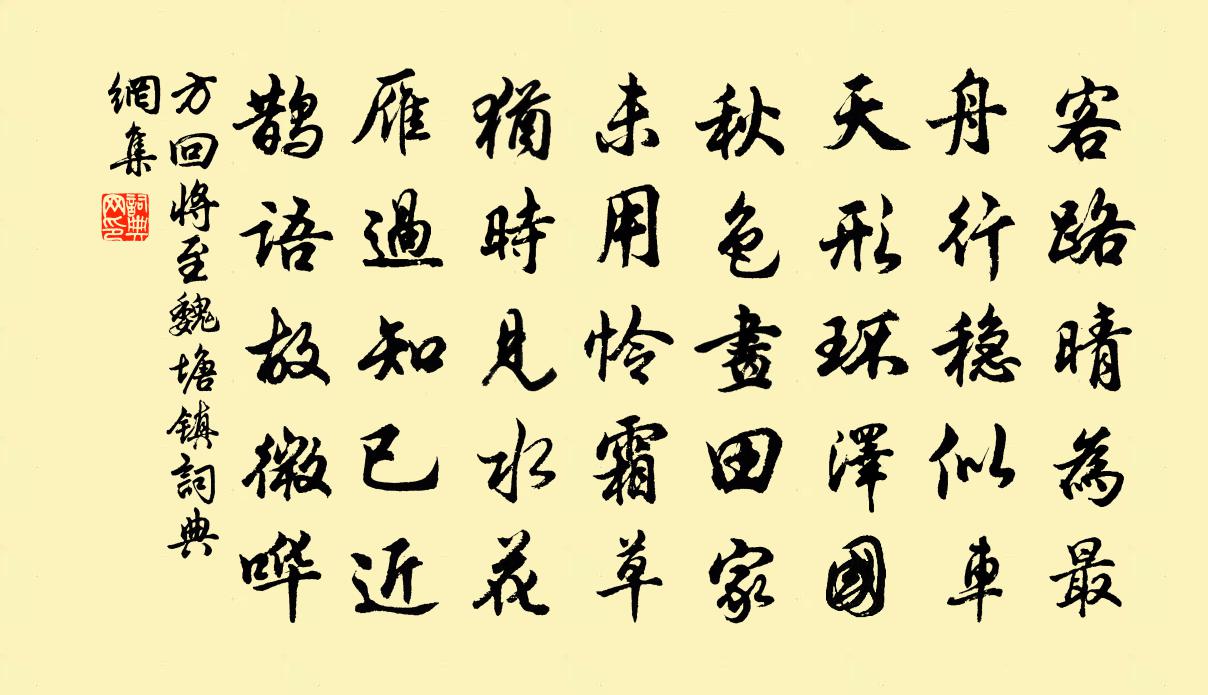 客路晴為最
舟行稳似車
天形环澤國
秋色畫田家
未用怜霜草
猶時見水花
雁過知已近
鵲語故微哗
方回將至魏塘鎮詞典
網集
詞典网印